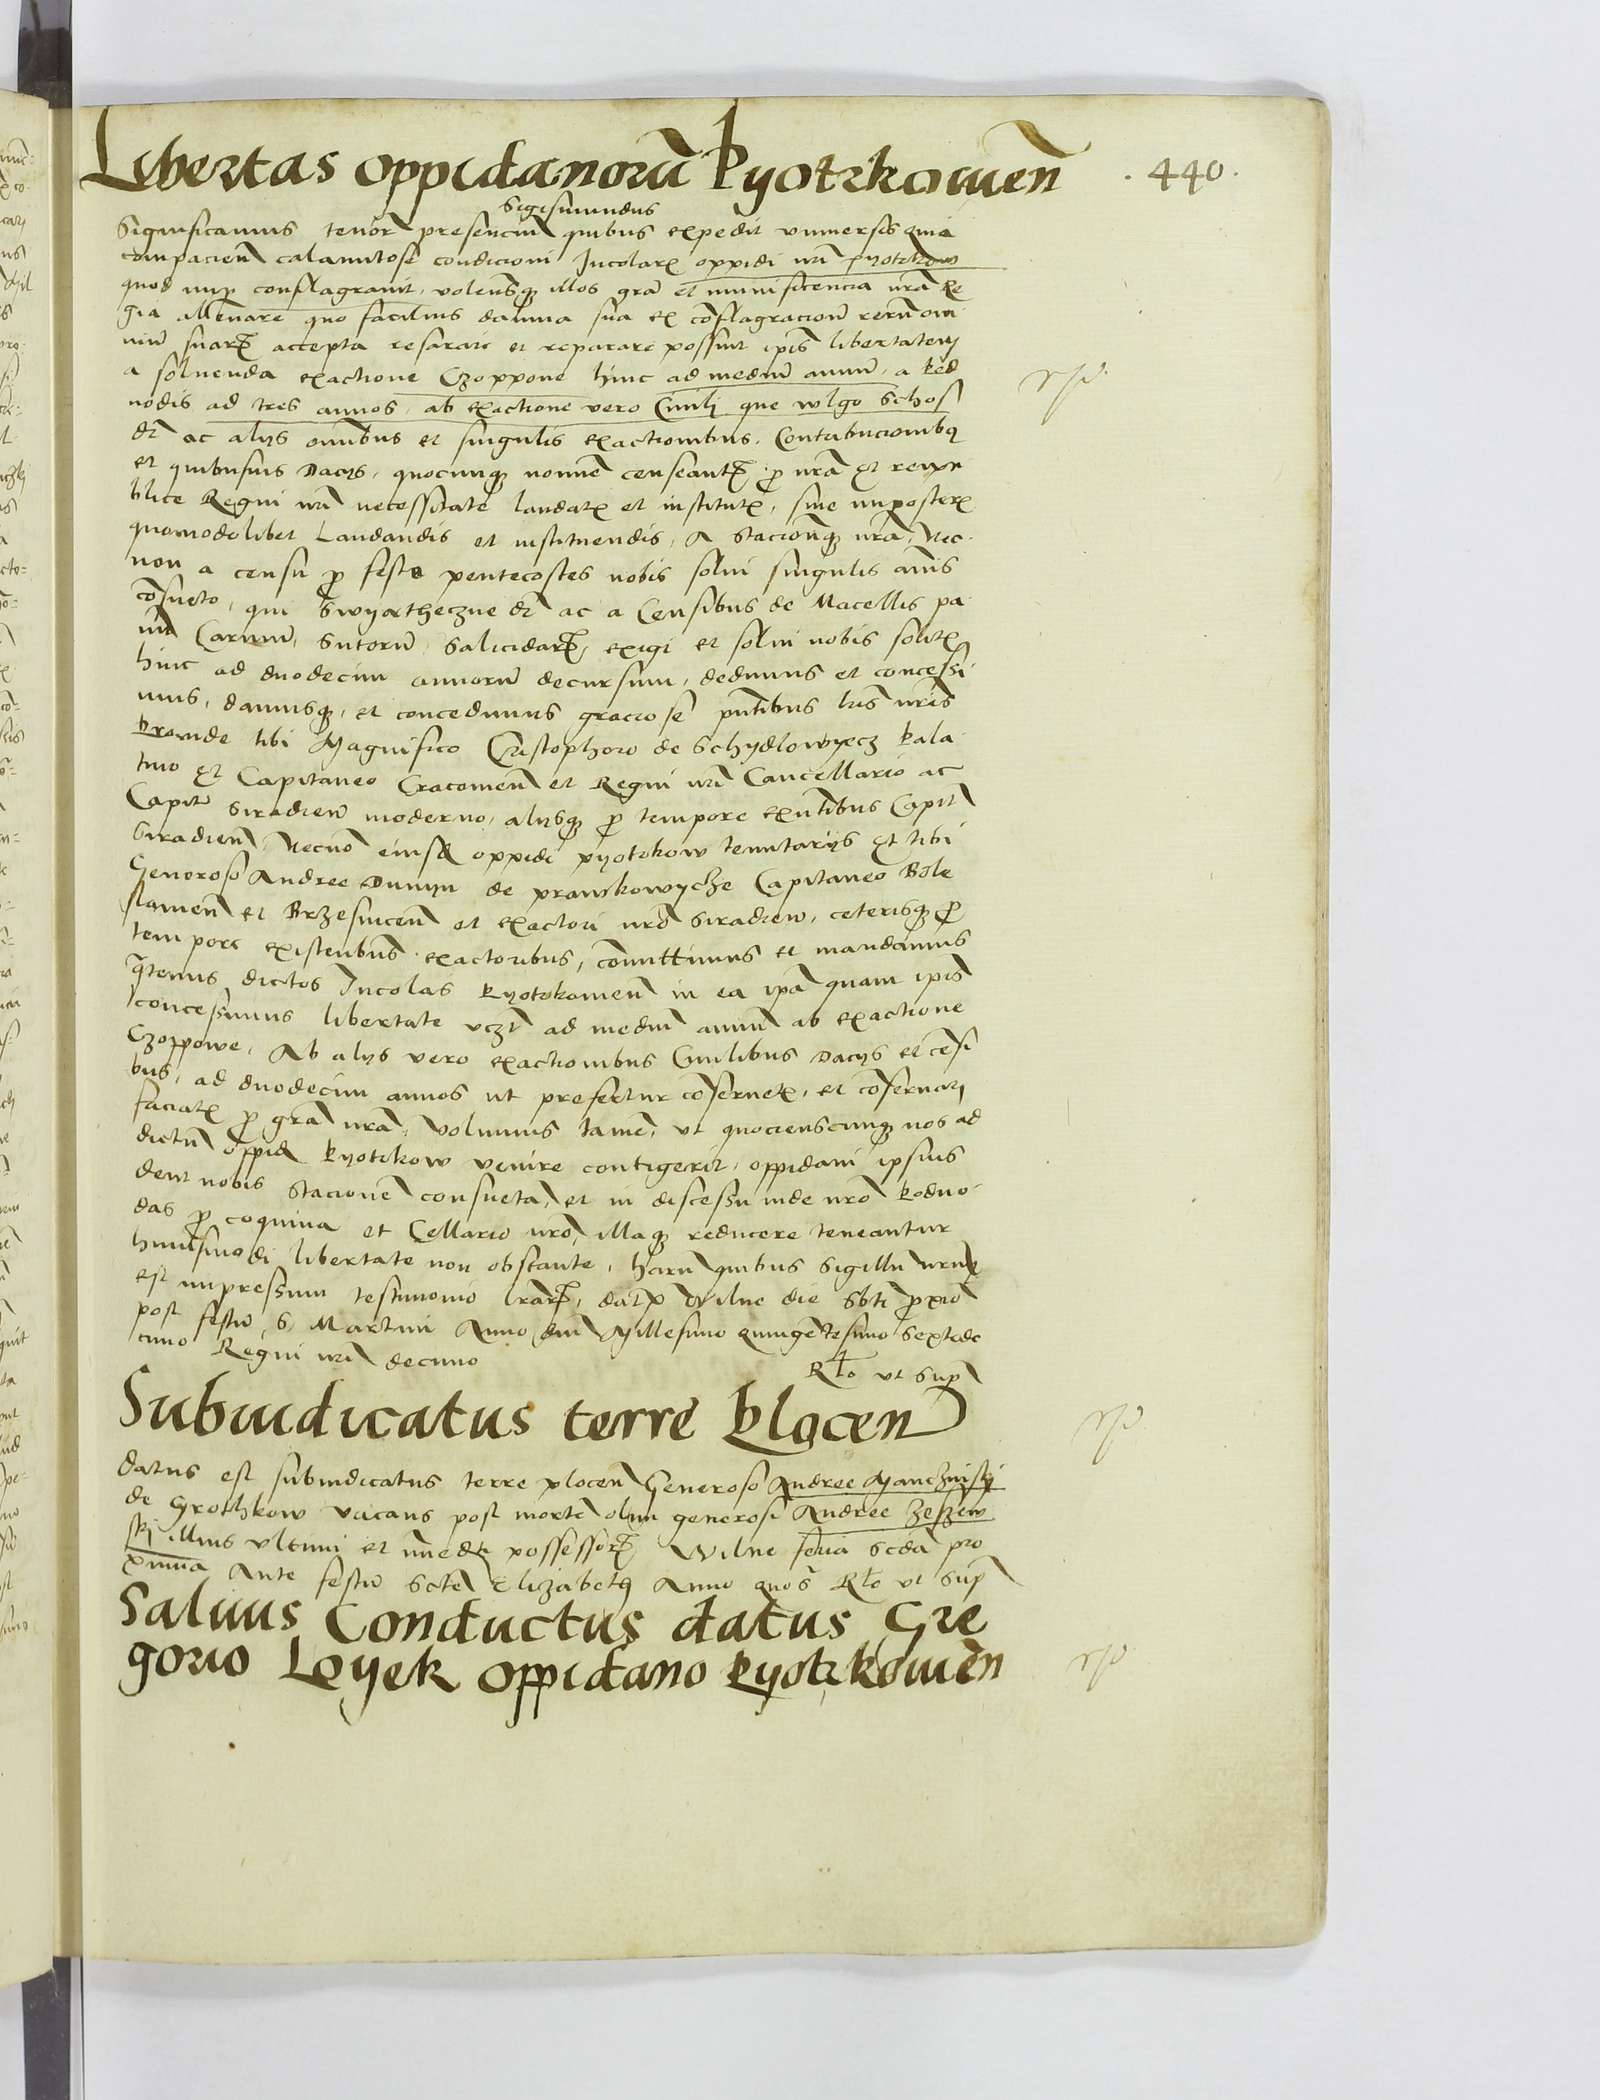 Libertas oppidanorū Pyotrkowieñ
. 440 .
Sigismundus
Significamus tenor̄ presenciū quibus expedit vniuersis quia
compacieñ calamitose condicioni Incolarꝫ oppidi nr̄i pyotrkow
quod nup̱ conflagrauit, volensqꝫ illos grā et munificencia nrā Re
gia alleuare quo facilius damna sua ex cōflagracioñ rerum om
niū suarꝫ accepta resarcire et reparare possint ip̄is libertatem
a soluenda exactione Czoppowe hinc ad mediū annū, a pod
uodis ad tres annos, ab exactione vero Ciuili que wlgo Schos
dr̄ ac alijs om̄ibus et singulis exactionibus, Contribucionibꝫ
et quibusuis Dacijs, quocunqꝫ nomine censeantꝫ p̱ nrā et reipu
blice Regni nr̄i necessitate laudatꝫ et institutꝫ, siue imposterꝫ
quomodolibet Laudandis et instituendis, A stacionqꝫ nrā, Nec
non a censu p̱ festo pentecostes nobis solui singulis annis
cōsueto, qui Swyatheczne dr̄ ac a Censibus de Macellis pa
niū Carniū, Sutorū, Salicidarꝫ, exigi et solui nobis solitꝫ
hinc ad duodecim annorū decursum, dedimus et concessi
mus, damusqꝫ, et concedimus graciose pñtibus lr̄is nr̄is
Proinde tibi Magnifico Cristophoro de Schydlowyecz Pala
tino et Capitaneo Cracouieñ et Regni nr̄i Cancellario ac
Capitō Siradieñ moderno, alijsqꝫ p̱ tempore exñtibus Capit̄
Siradieñ, Necnō eiusd̄ oppidi pyotrkow tenutarijs Et tibi
Generoso Andree Dunyn de prawkowycze Capitaneo Bole
slauieñ et Brzesniceñ et exactori nr̄o Siradieñ, ceterisqꝫ p̱
tempore existentibus exactoribus, cōmittimus et mandamus
q̄tenus dictos Incolas Pyotrkowieñ in ea ip̄a quam ip̄is
concessimus libertate vcꝫt ad mediū annū ab exactione
Czoppowe, Ab alijs vero exactionibus Ciuilibus Dacijs et cēsi
bus, ad duodecim annos ut prefertur cōseruetꝫ, et cōseruarj
faciatꝫ p̱ grā nrā, Volumus tamē, vt quocienscunqꝫ nos ad
dictū oppid̄ Pyotrkow venire contigerit, oppidani ipsius
dent nobis stacionē consuetā, et in discessu inde nr̄o Poduo
das p̱ coquina et Cellario nr̄o, illaqꝫ reducere teneantur
huiusmodi libertate non obstante, harū quibus Sigillū nr̄um
est impressum testimonio lr̄arꝫ, datꝫ Wilne die Sbti p̱xīo
post festū S. Martini Anno dñi Millesimo quingētesimo Sextode
cimo Regni nr̄i decimo
Rlo vt Sup̱
Subiudicatus terre Ploceñ
datus est subiudicatus terre ploceñ Generoso Andree Manczinskj
de Grothkow vacans post mortē olim generosi Andree Zeszew
skj illius vltimi et imēdꝫ possessorꝫ Wilne feria scda pro
xima Ante festū Scte Elizabeth Anno quoS Rlo vt Sup̱
Saluus Conductus datus Gre
gorio Loyek oppidano Pyotrkowieñ